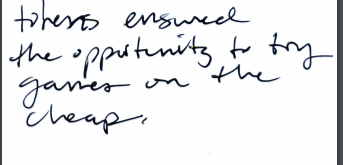 tokens ensured
the opportunity to try
games on the
cheap.